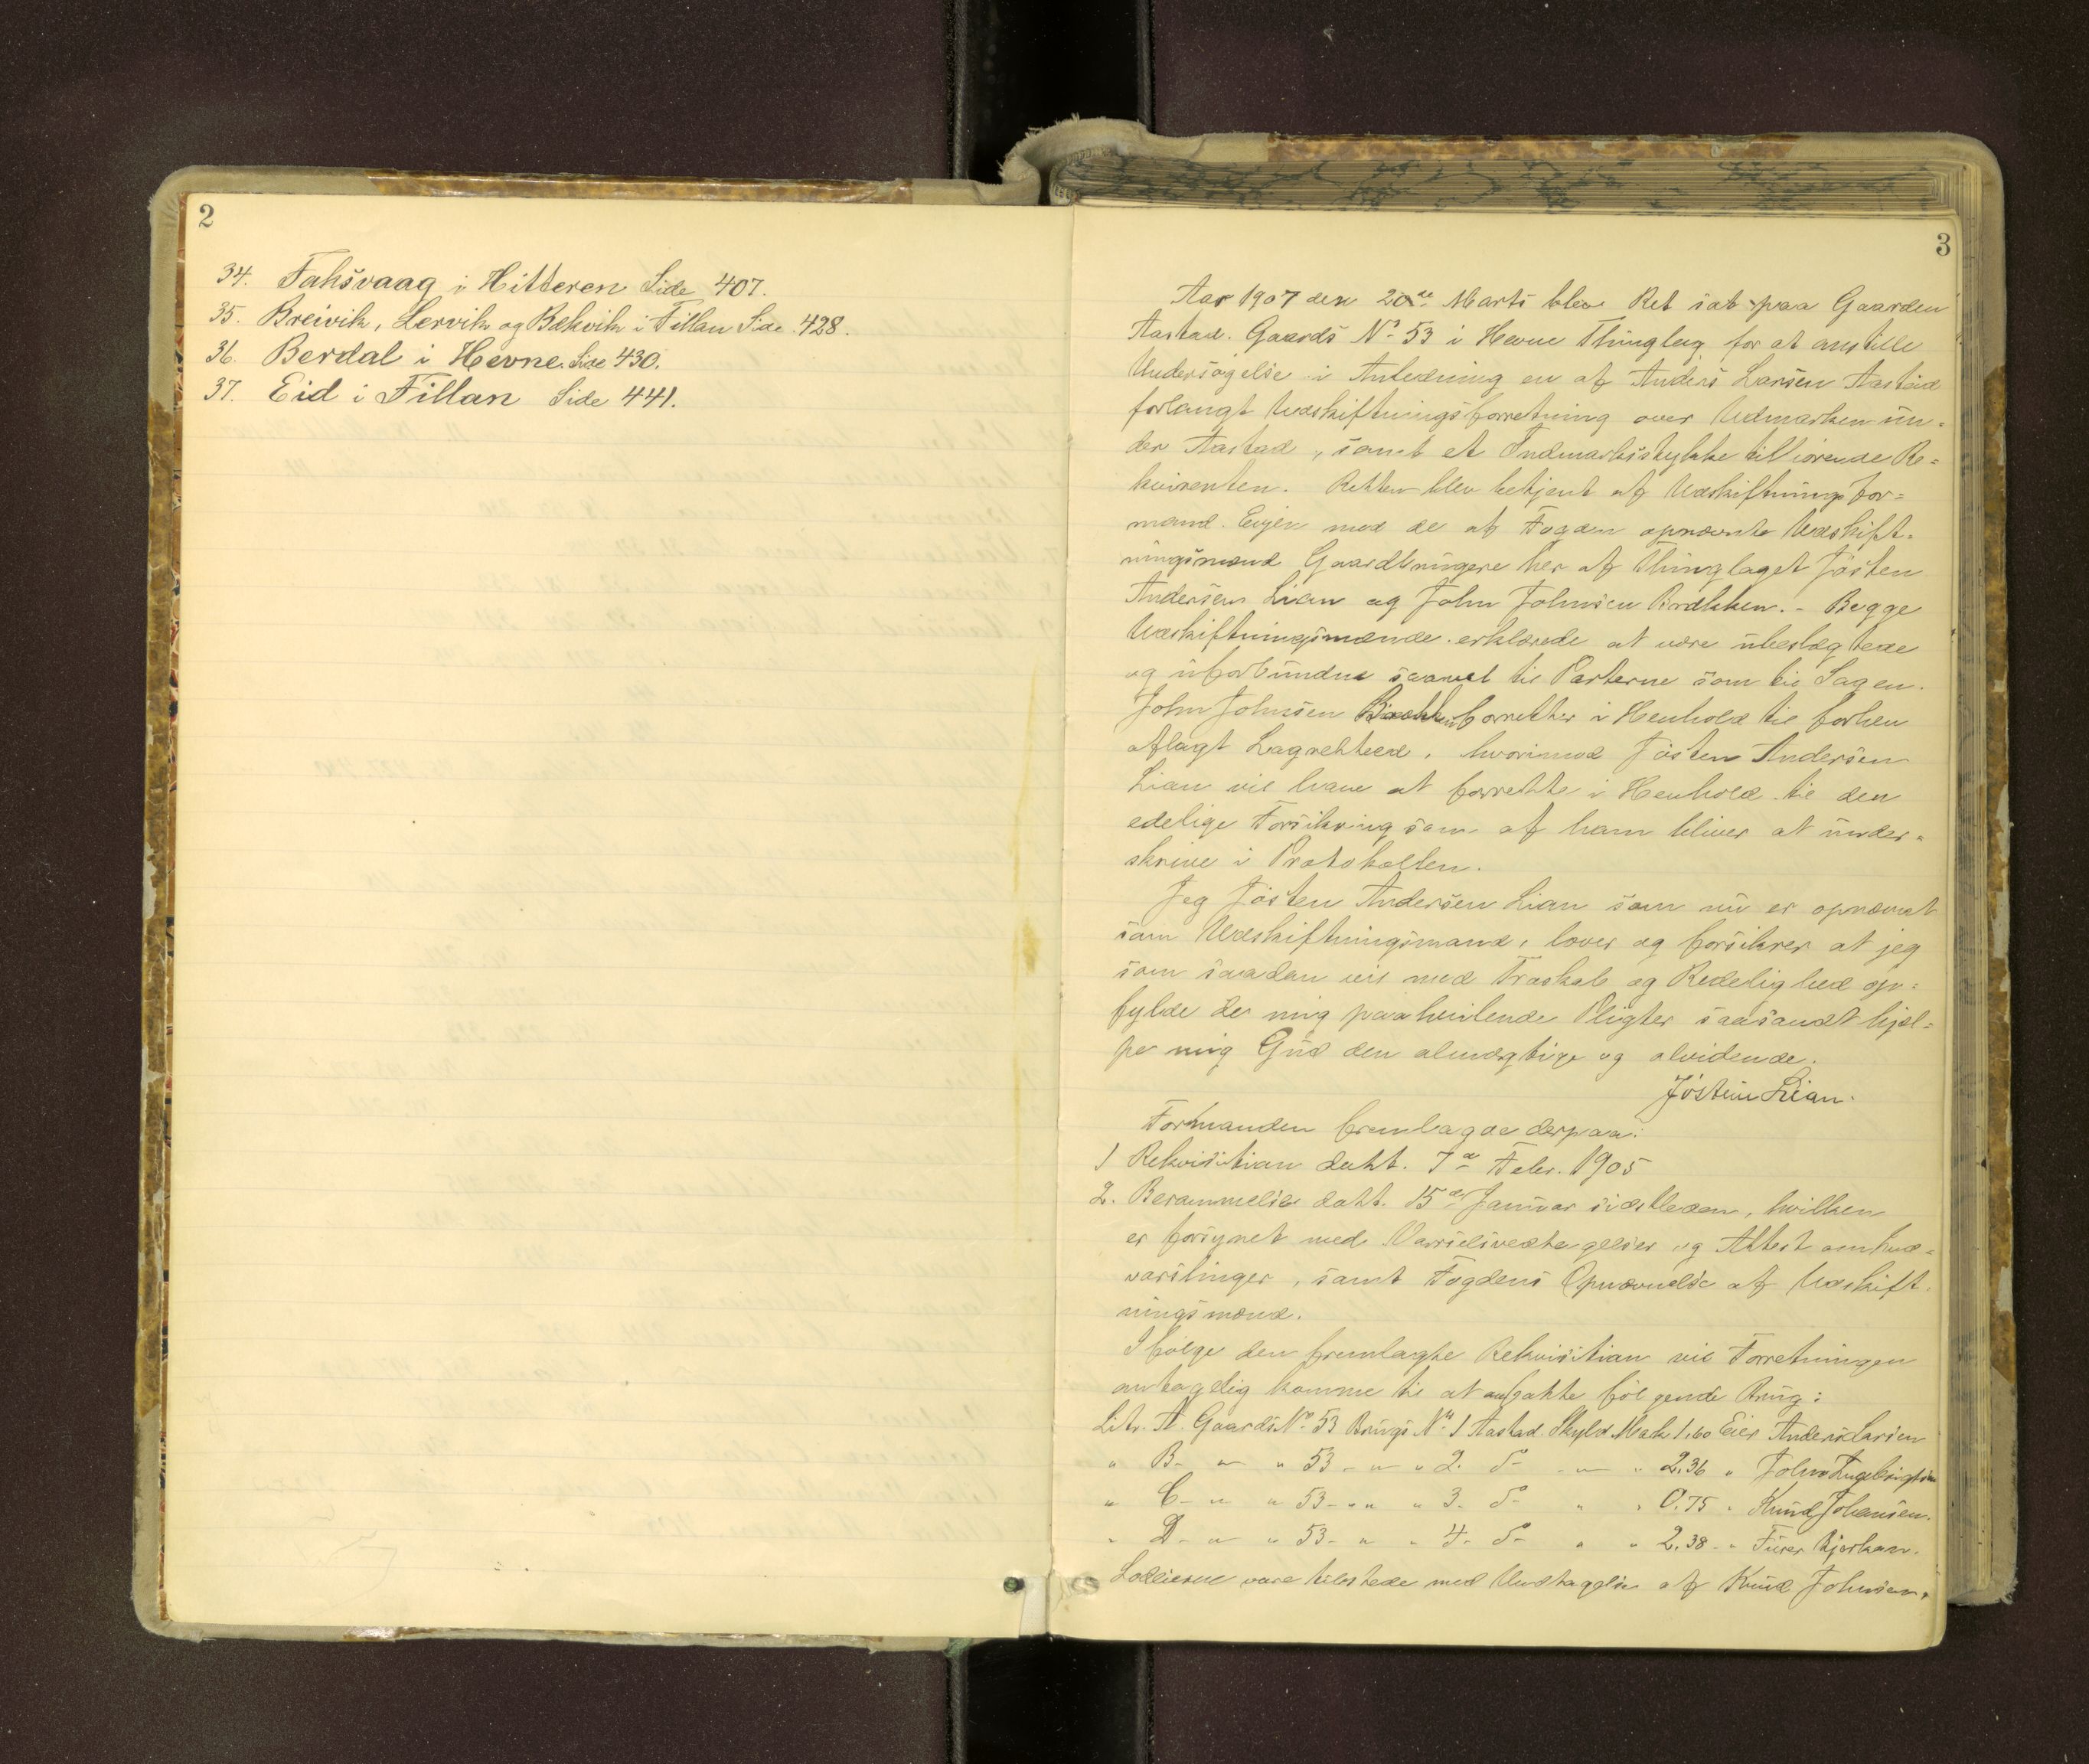 2
34. Faksvaag i Hitteren Side 407.
35. Breivik, Lervik og Bekvik i Fillan Side 428.
36. Berdal i Hevne Side 430.
37. Eid i Fillan Side 441.
3
Aar 1907 den 20de Marts blev Ret sat paa Gaarden
Aastad. Gaards No 53 i Hevne Thinglag for at anstille
Undersøgelse i Anledning en af Anders Larsen Aastad
forlangt Udskiftningsforretning over Udmarken un-
der Aastad, samt et Indmarksstykke tilhørende Re-
kvirenten. Retten blev betjent af Udskiftningsfor-
mand Eigen med de af Fogden opnævnte Udskift-
ningsmænd Gaardbrugere her af Thinglaget Jøsten
Andersen Lian og John Johnsen Brækken. - Begge
Udskiftningsmænde erklærede at være ubeslægtede
og uforbundne saavel til Parterne som til Sagen.
John Johnsen Brækken forretter i Henhold til forhen
aflagt Lagretteed, hvorimod Jøsten Andersen
Lian vil have at forrette i Henhold til den
edelige Forsikring som af ham bliver at under-
skrive i Protokollen.
Jeg Jøsten Andersen Lian som nu er opnævnt
som Udskiftningsmand, lover og forsikrer at jeg
som saadan vil med Troskab og Redelighed op-
fylde de mig paahvilende Pligter saasandt hjæl-
pe mig Gud den almægtige og alvidende.
Jøstein Lian.
Formanden fremlagde derpaa:
1 Rekvisition datt. 7de Febr. 1905
2. Berammelse datt. 15de Januar sidstleden, hvilken
er forsynet med Varselsvedtagelser og Attest om
varslinger, samt Fogdens Opnævnelse af Udskift-
ningsmænd.
Ifølge den fremlagte Rekvisition vil Forretningen
antagelig komme til at omfatte følgende Brug:
Litr. A. Gaards No 53 Brugs No 1 Aastad Skyld Mark 1,60 Eier Anders Larsen
" B - " - " 53 - " - " 2. do - " - " 2,36 " John Ingebrigtsen
" C - " " 53 - " " " 3. do " " 0.75 " Knud Johansen.
" D - " " 53 - " " 4. do " " 2,38 - "
Lodeierne vare tilstede med Undtagelse af Knud Johnsen,